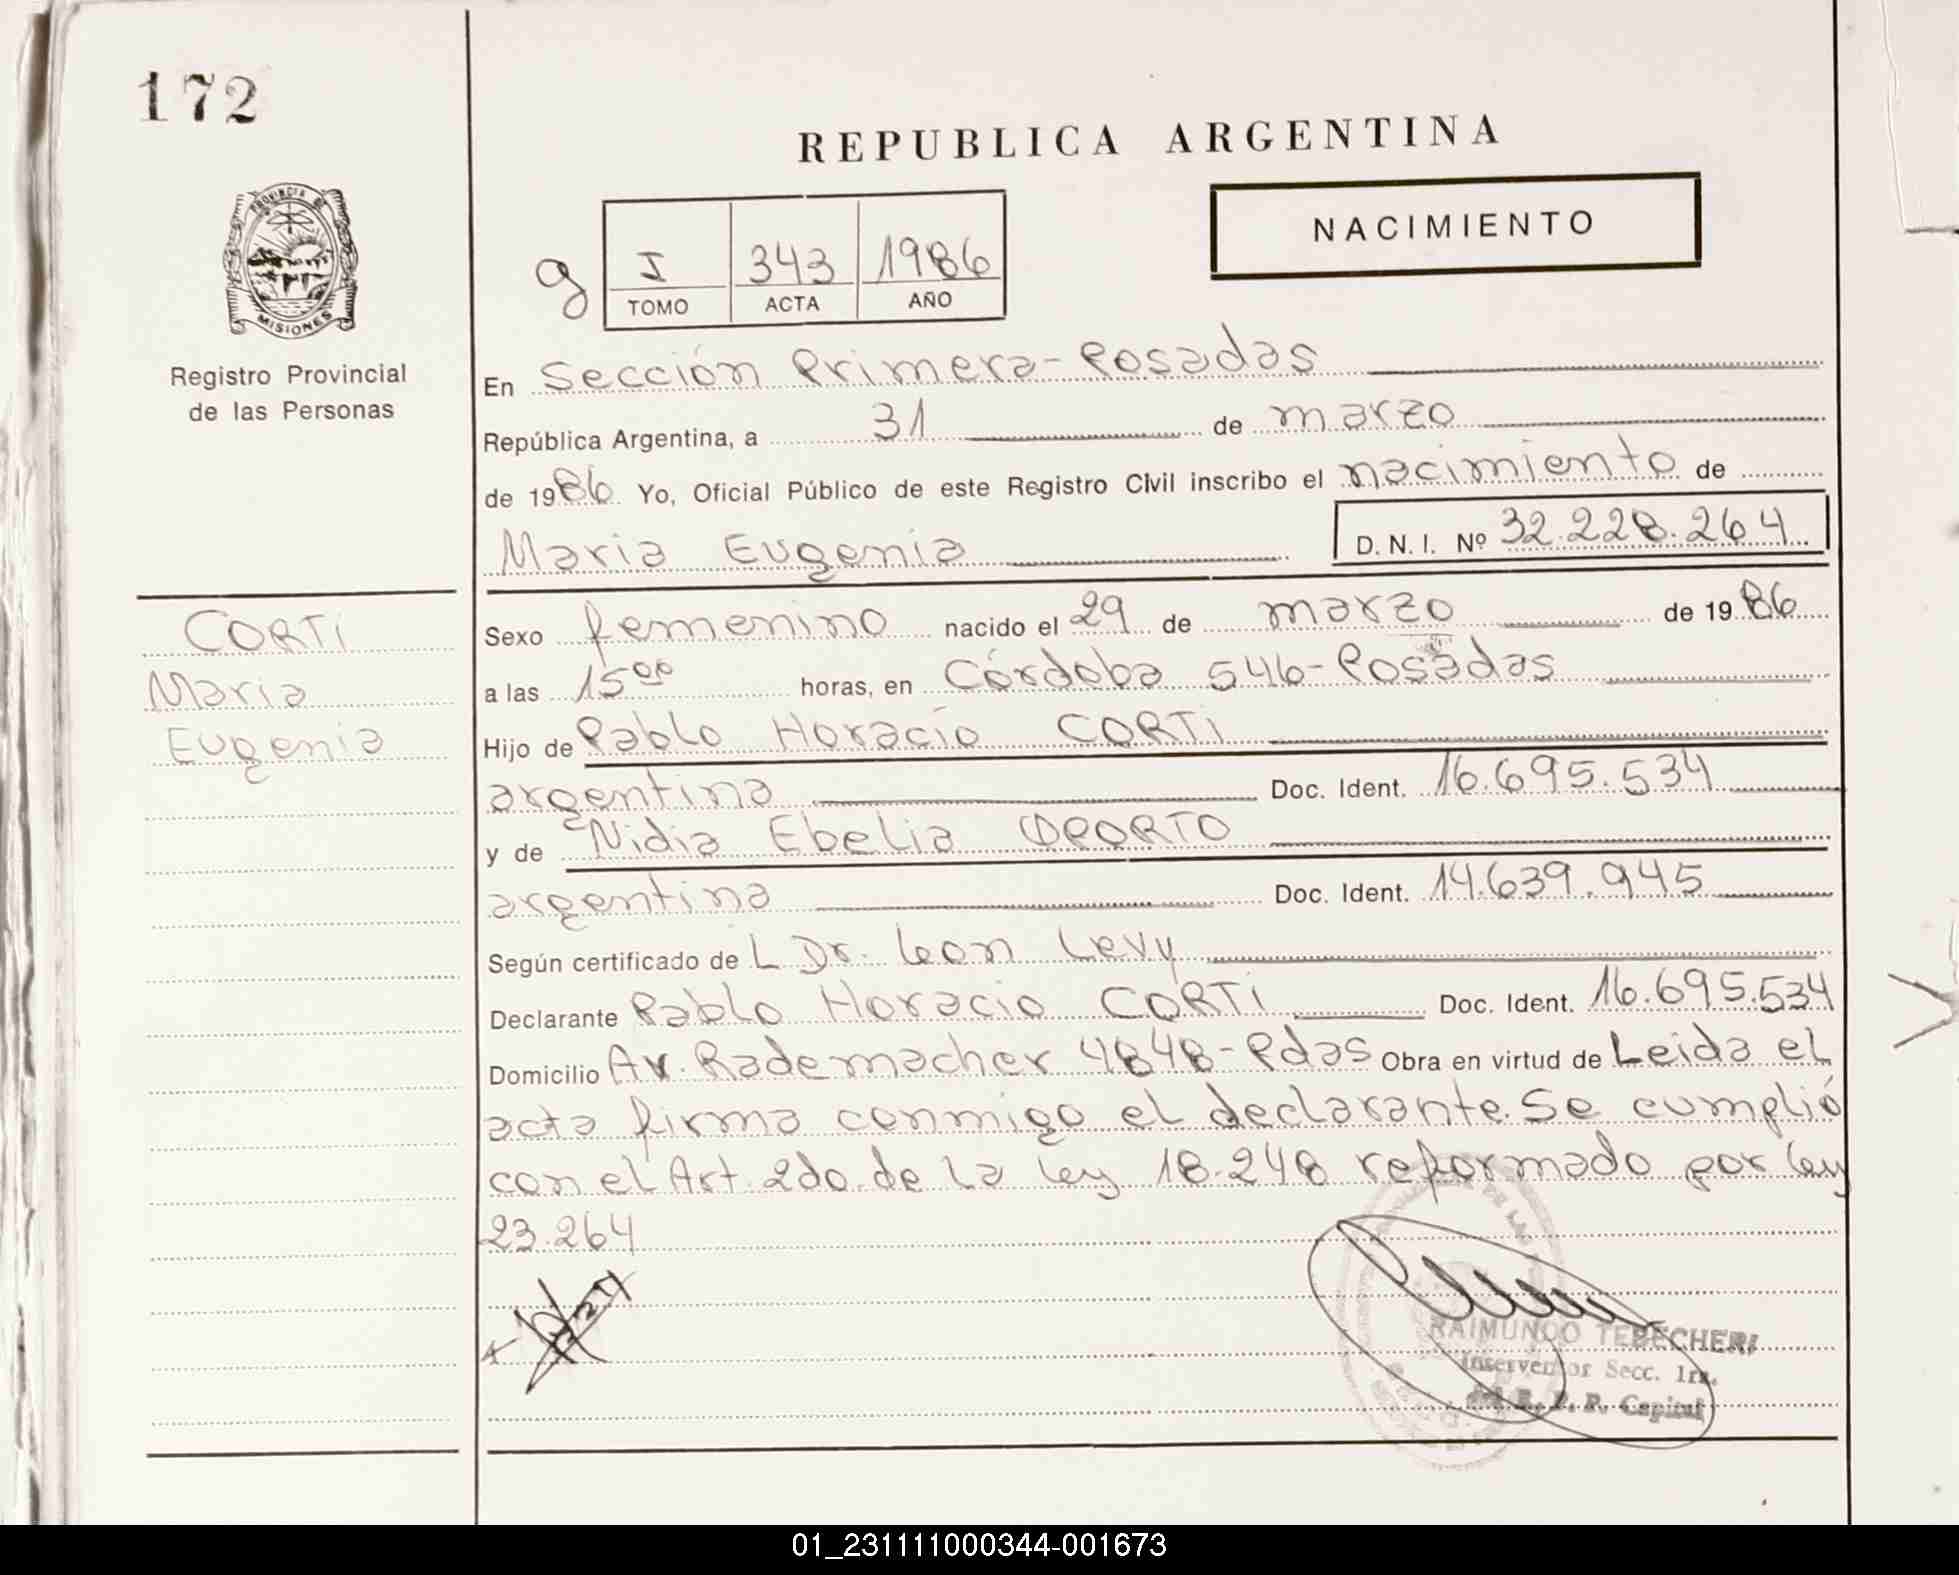 172
REPUBLICA ARGENTINA
PROVINCIA DE
MISIONES
Registro Provincial
de las Personas
NACIMIENTO
g
I 343 1986
TOMO ACTA AÑO
En Sección Primera-Posadas
República Argentina, a 31 de marzo
de 1986 Yo, Oficial Público de este Registro Civil inscribo el nacimiento de
Maria Eugenia D.N.I. Nº 32.228.264
CORTI
Maria
Eugenia
Sexo femenino nacido el 29 de marzo de 1986
a las 15⁰⁰ horas, en Córdoba 546-Posadas
Hijo de Pablo Horacio CORTI
argentina Doc. Ident. 16.695.534
y de Nidia Ebelia OPORTO
argentina Doc. Ident. 14.639.945
Según certificado de L Dr. Leon Levy
Declarante Pablo Horacio CORTI Doc. Ident. 16.695.534
Domicilio Av. Rademacher 4848-Pdas Obra en virtud de Leida el
acta firma conmigo el declarante. Se cumplió
con el Art. 2do. de la Ley 18.248 reformado por ley
23.264
RAIMUNDO TEBECHERI
Interventor Secc. 1ra.
del R. P. P. Capital
01_231111000344-001673